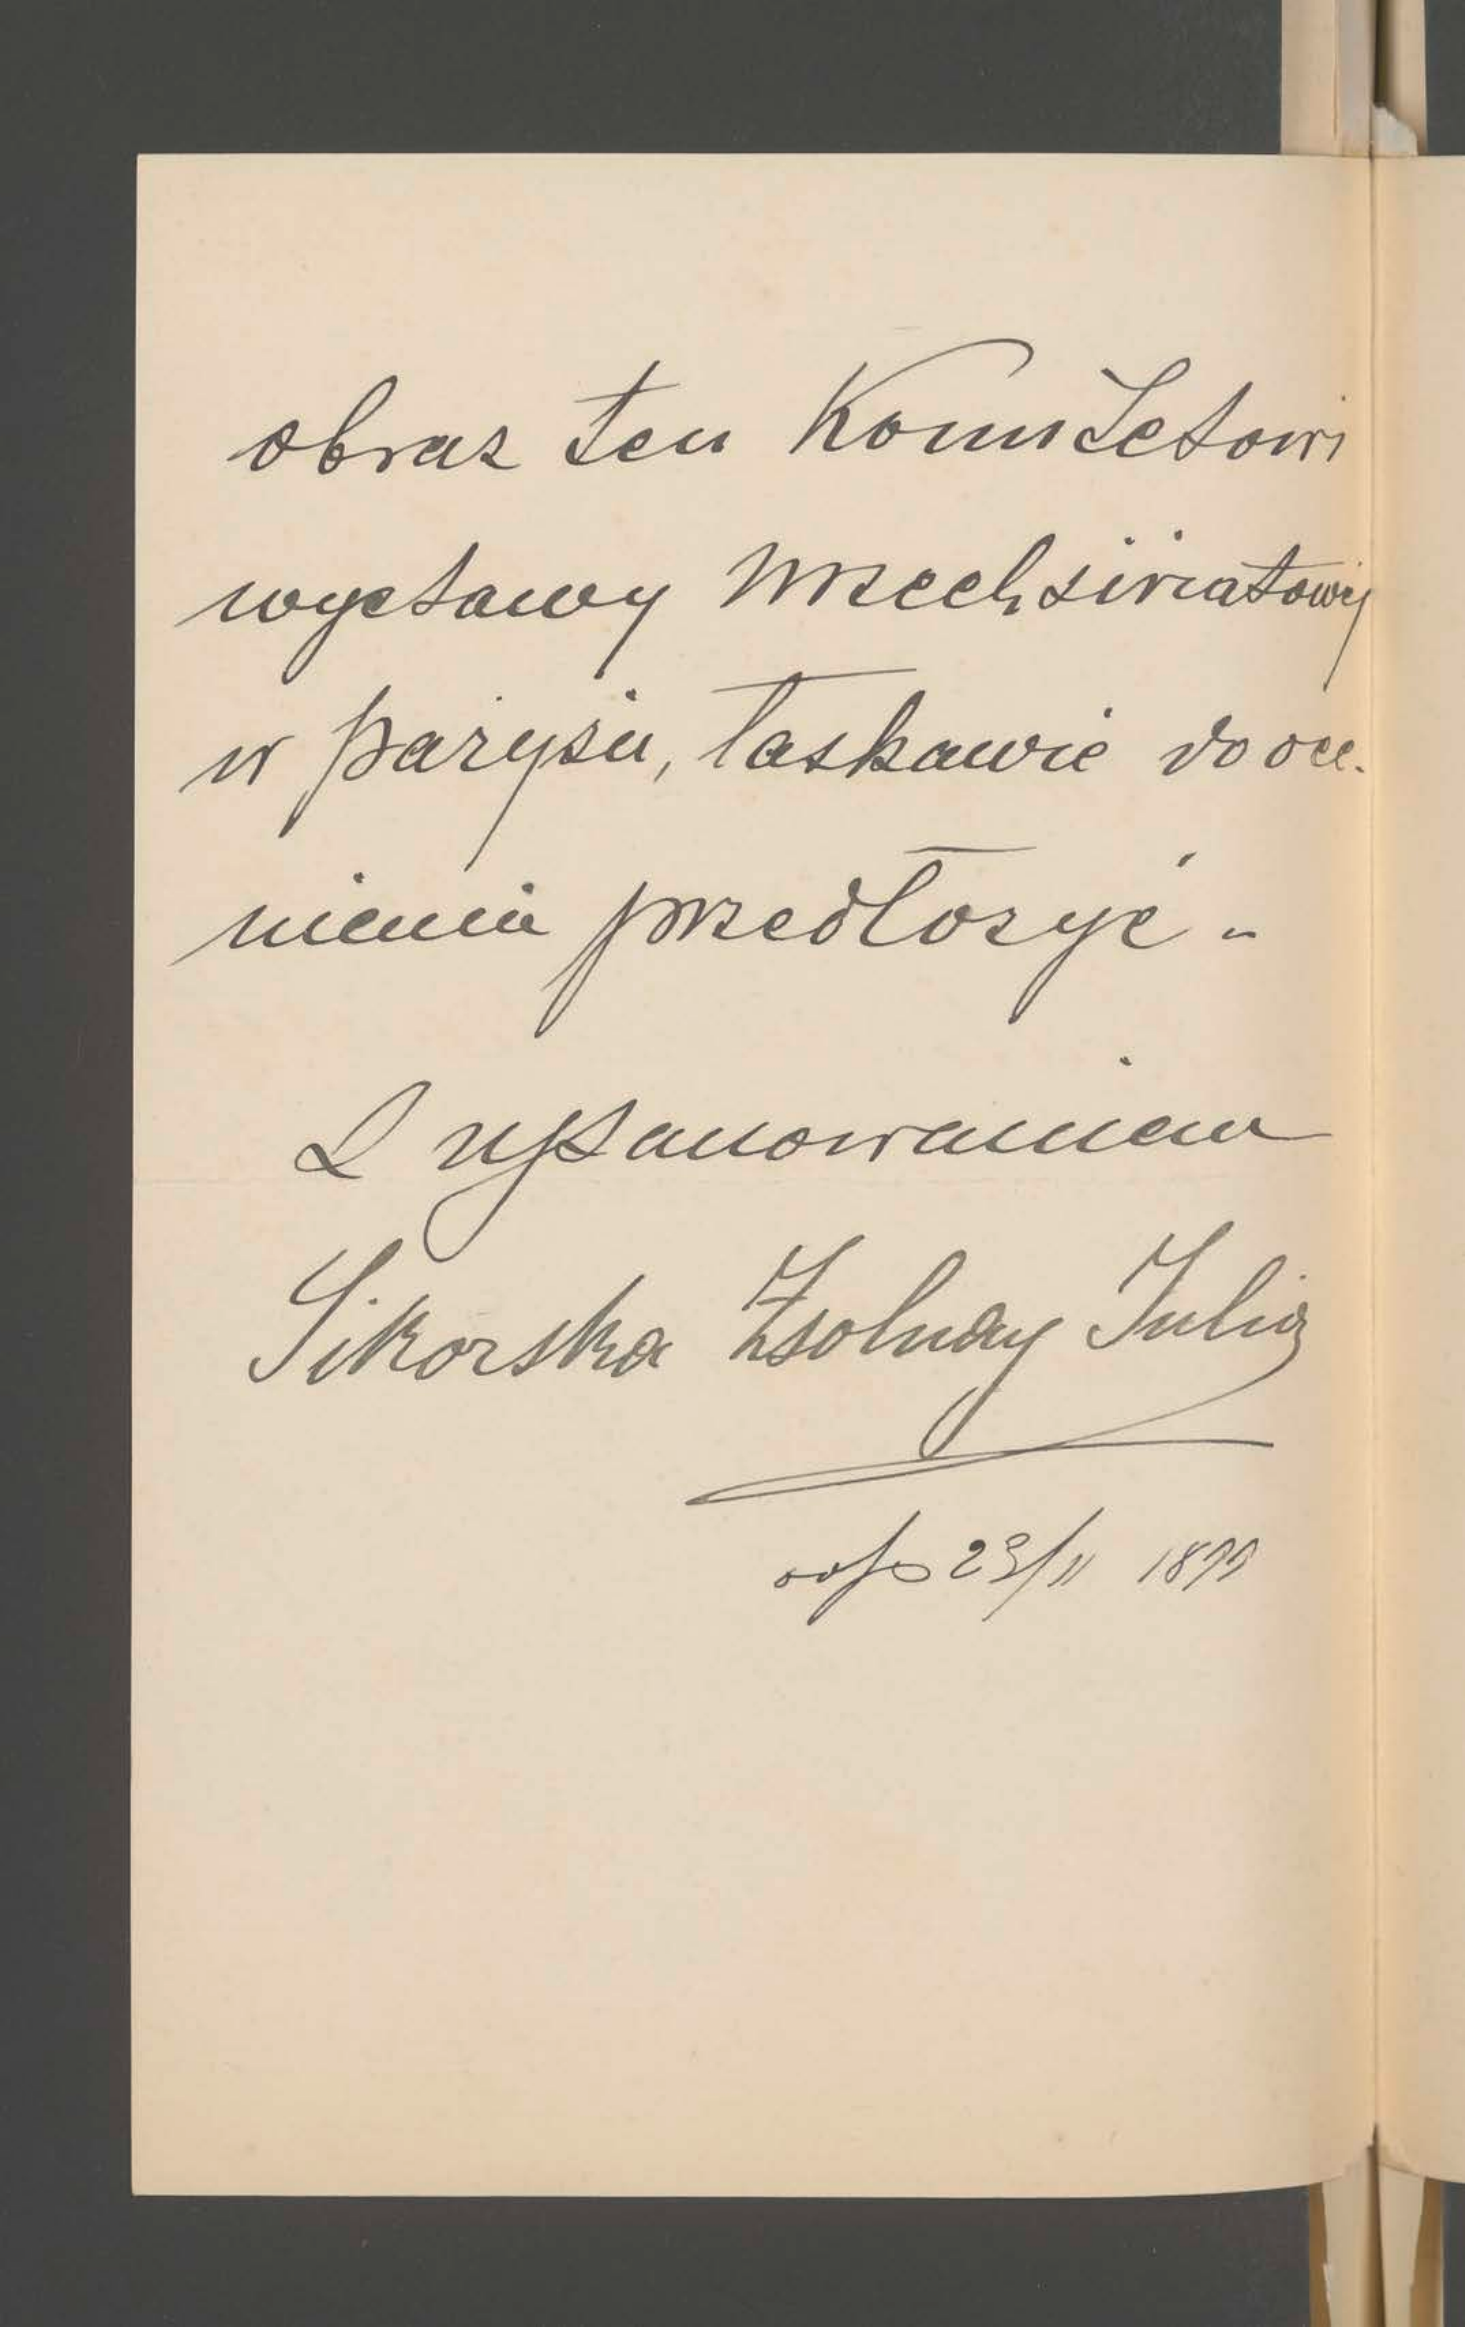 obraz ten Komitetowi
wystawy wszechświatowej
w Paryżu, łaskawie do oce-
nienia przedłożyć -
Z uszanowaniem
Sikorska Zsolnay Julia
23/11 1899